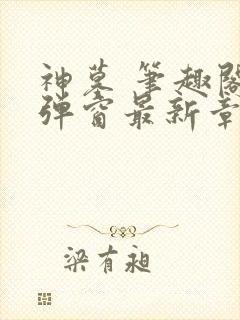 神墓 笔趣阁
弹窗最新章
梁有昶